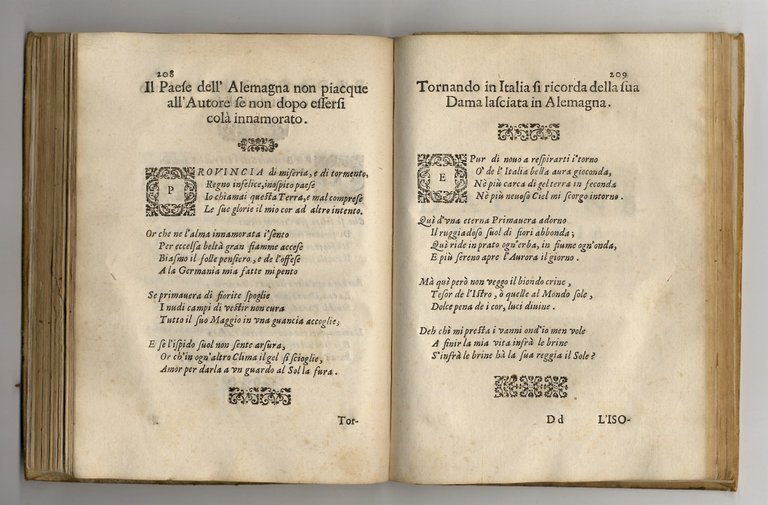 208
Il Paeſe dell' Alemagna non piacque
all'Autore ſe non dopo eſſerſi
colà innamorato.
PROVINCIA di miſeria, e di tormento,
Regno infelice, inoſpito paeſe
Io chiamai queſta Terra, e mal compreſe
Le ſue glorie il mio cor ad altro intento.
Or che ne l'alma innamorata i'ſento
Per eccelſa beltà gran fiamme acceſe
Biaſmo il folle penſiero, e de l'offeſe
A la Germania mia fatte mi pento
Se primauera di fiorite ſpoglie
I nudi campi di veſtir non cura
Tutto il ſuo Maggio in vna guancia accoglie;
E ſe l'iſpido ſuol non ſente arſura,
Or ch'in ogn'altro Clima il gel ſi ſcioglie,
Amor per darla a vn guardo al Sol la fura.
Tor-
209
Tornando in Italia ſi ricorda della ſua
Dama laſciata in Alemagna.
E Pur di nouo a reſpirarti i'torno
O' de l'Italia bella aura gioconda,
Nè più carca di gel terra in feconda
Nè più neuoſo Ciel mi ſcorgo intorno.
Quì d'vna eterna Primauera adorno
Il ruggiadoſo ſuol di fiori abbonda;
Quì ride in prato ogn'erba, in fiume ogn'onda,
E più ſereno apre l'Aurora il giorno.
Mà quì però non veggo il biondo crine,
Teſor de l'Iſtro, ò quelle al Mondo ſole,
Dolce pena de i cor, luci diuine.
Deh chi mi preſta i vanni ond'io men vole
A finir la mia vita infrà le brine
S'infrà le brine hà la ſua reggia il Sole?
Dd L'ISO-